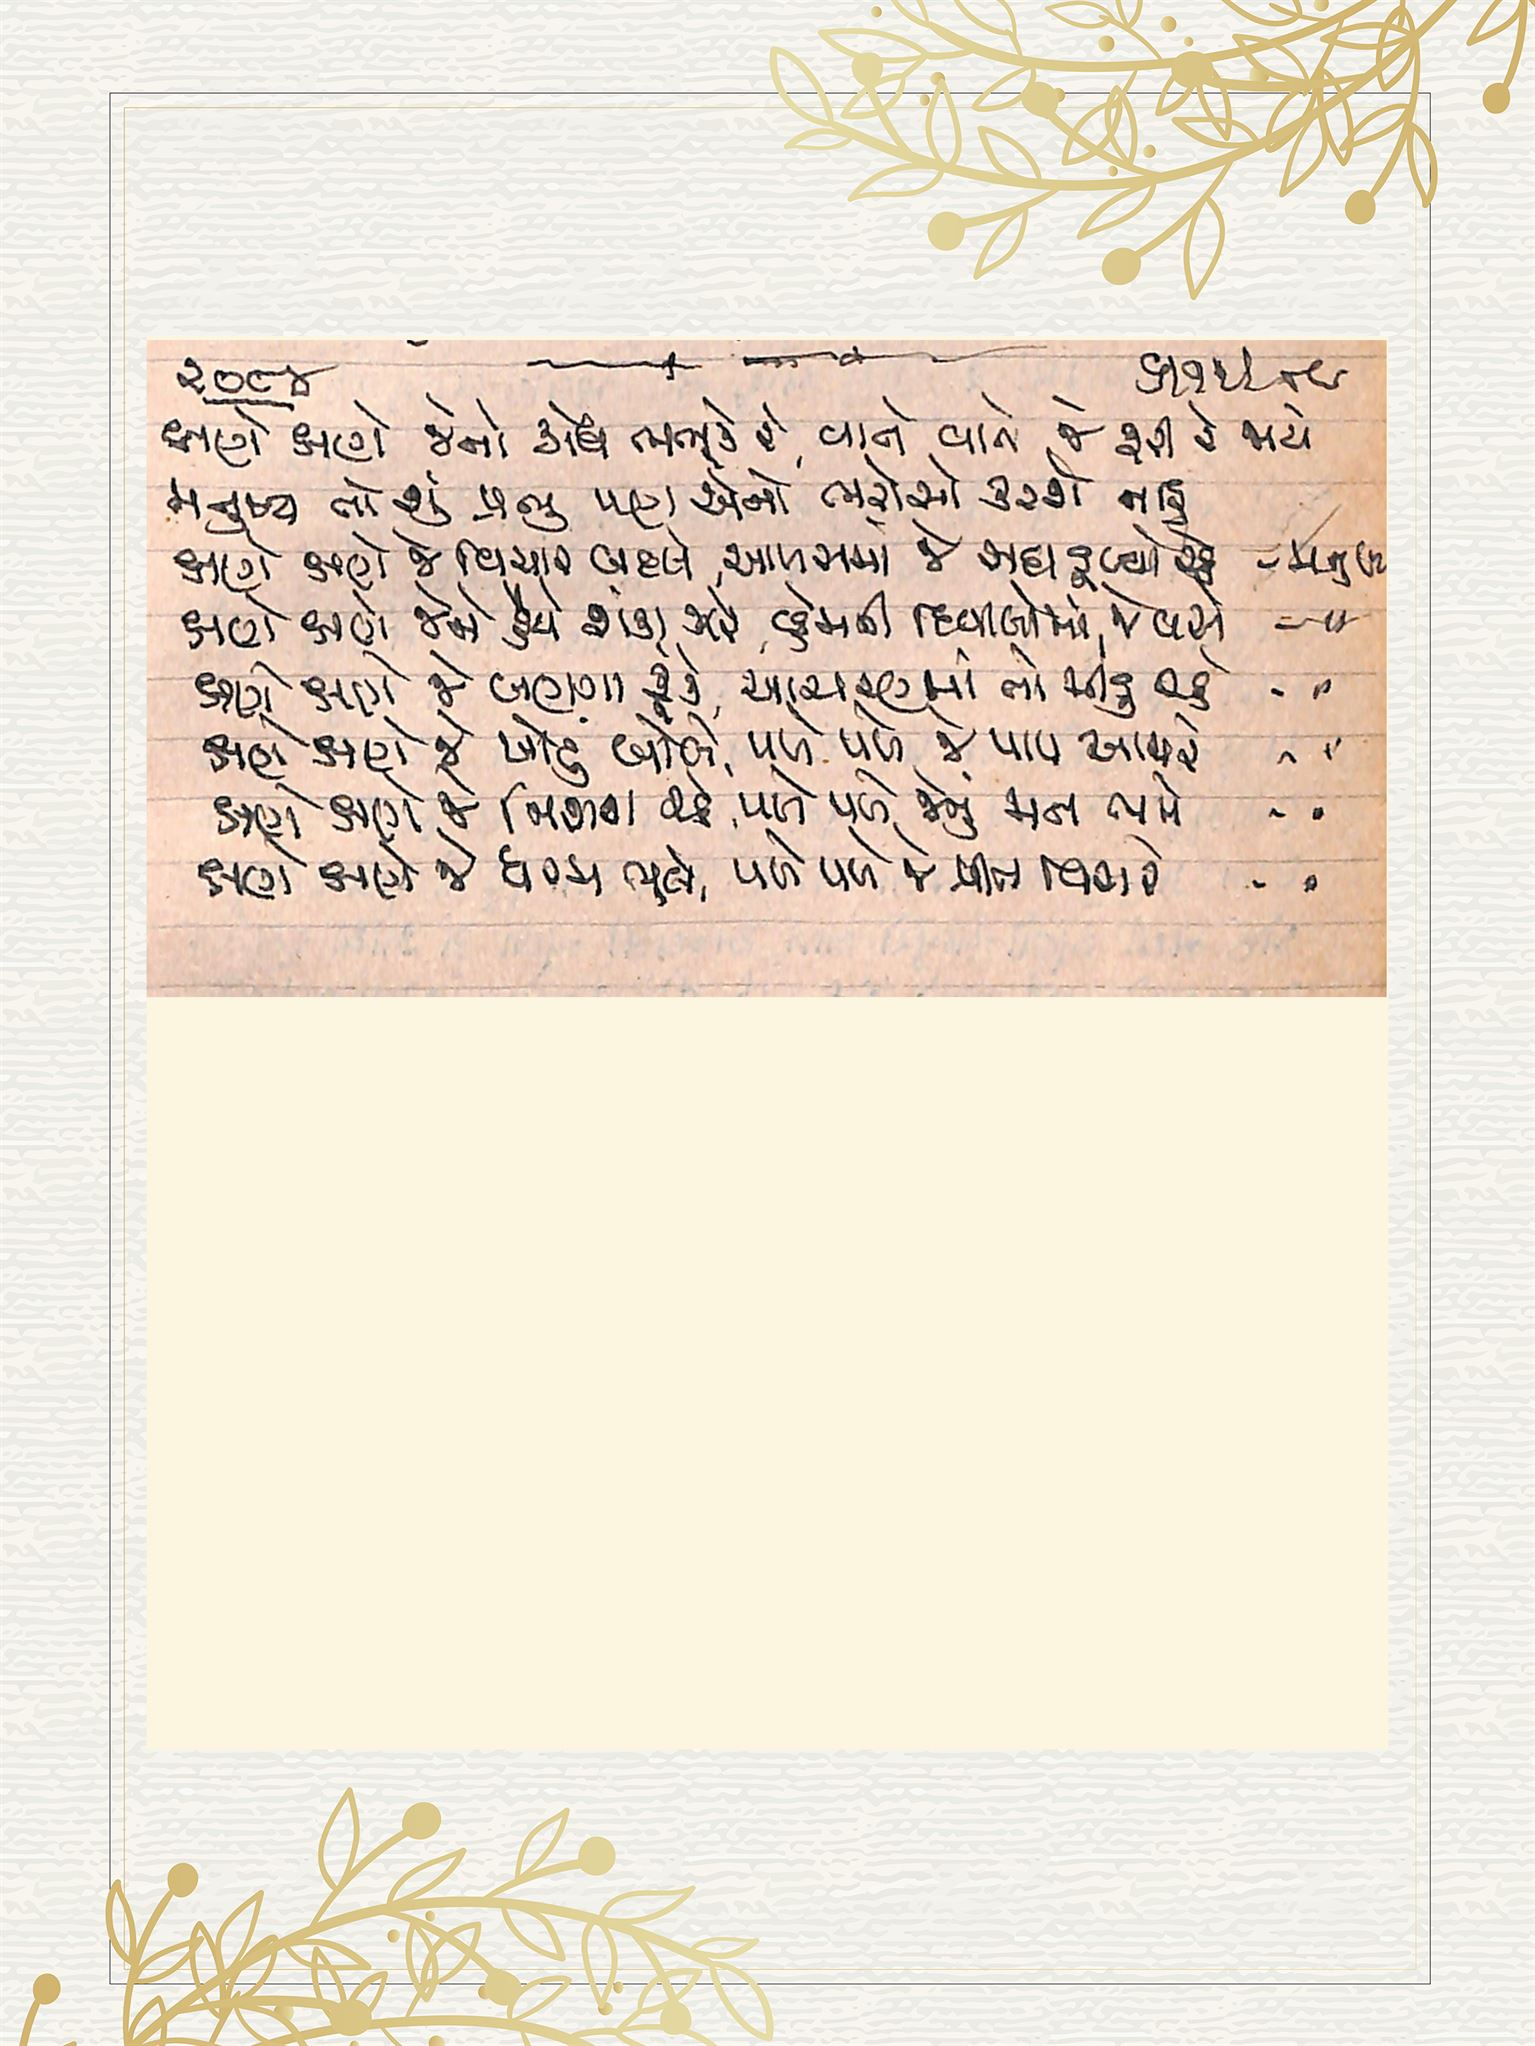 ૨૦૮૪
ક્ષણે ક્ષણે જેનો ક્રોધ ભભૂકે રે, વાતે વાતે જે ફરી રે જાયે
મનુષ્ય તો શું પ્રભુ પણ એનો ભરોસો કરશે નહિ
ક્ષણે ક્ષણે જે વિચાર બદલે, આળસમાં જે સદા ડૂબ્યો રહે - મનુષ્ય
ક્ષણે ક્ષણે જેને હૈયે શંકા જાગે, વહેમની દિવાલોમાં જે વસે - "
ક્ષણે ક્ષણે જે બણગા ફૂંકે, આચરણમાં તો મીંડુ રહે - "
ક્ષણે ક્ષણે જે ખોટું બોલે, પળે પળે જે પાપ આચરે - "
ક્ષણે ક્ષણે જે નિરાશ રહે, પળે પળે જેનું મન ભમે - "
ક્ષણે ક્ષણે જે ધરમ ભૂલે, પળે પળે જે પ્રીત વિસરે - "